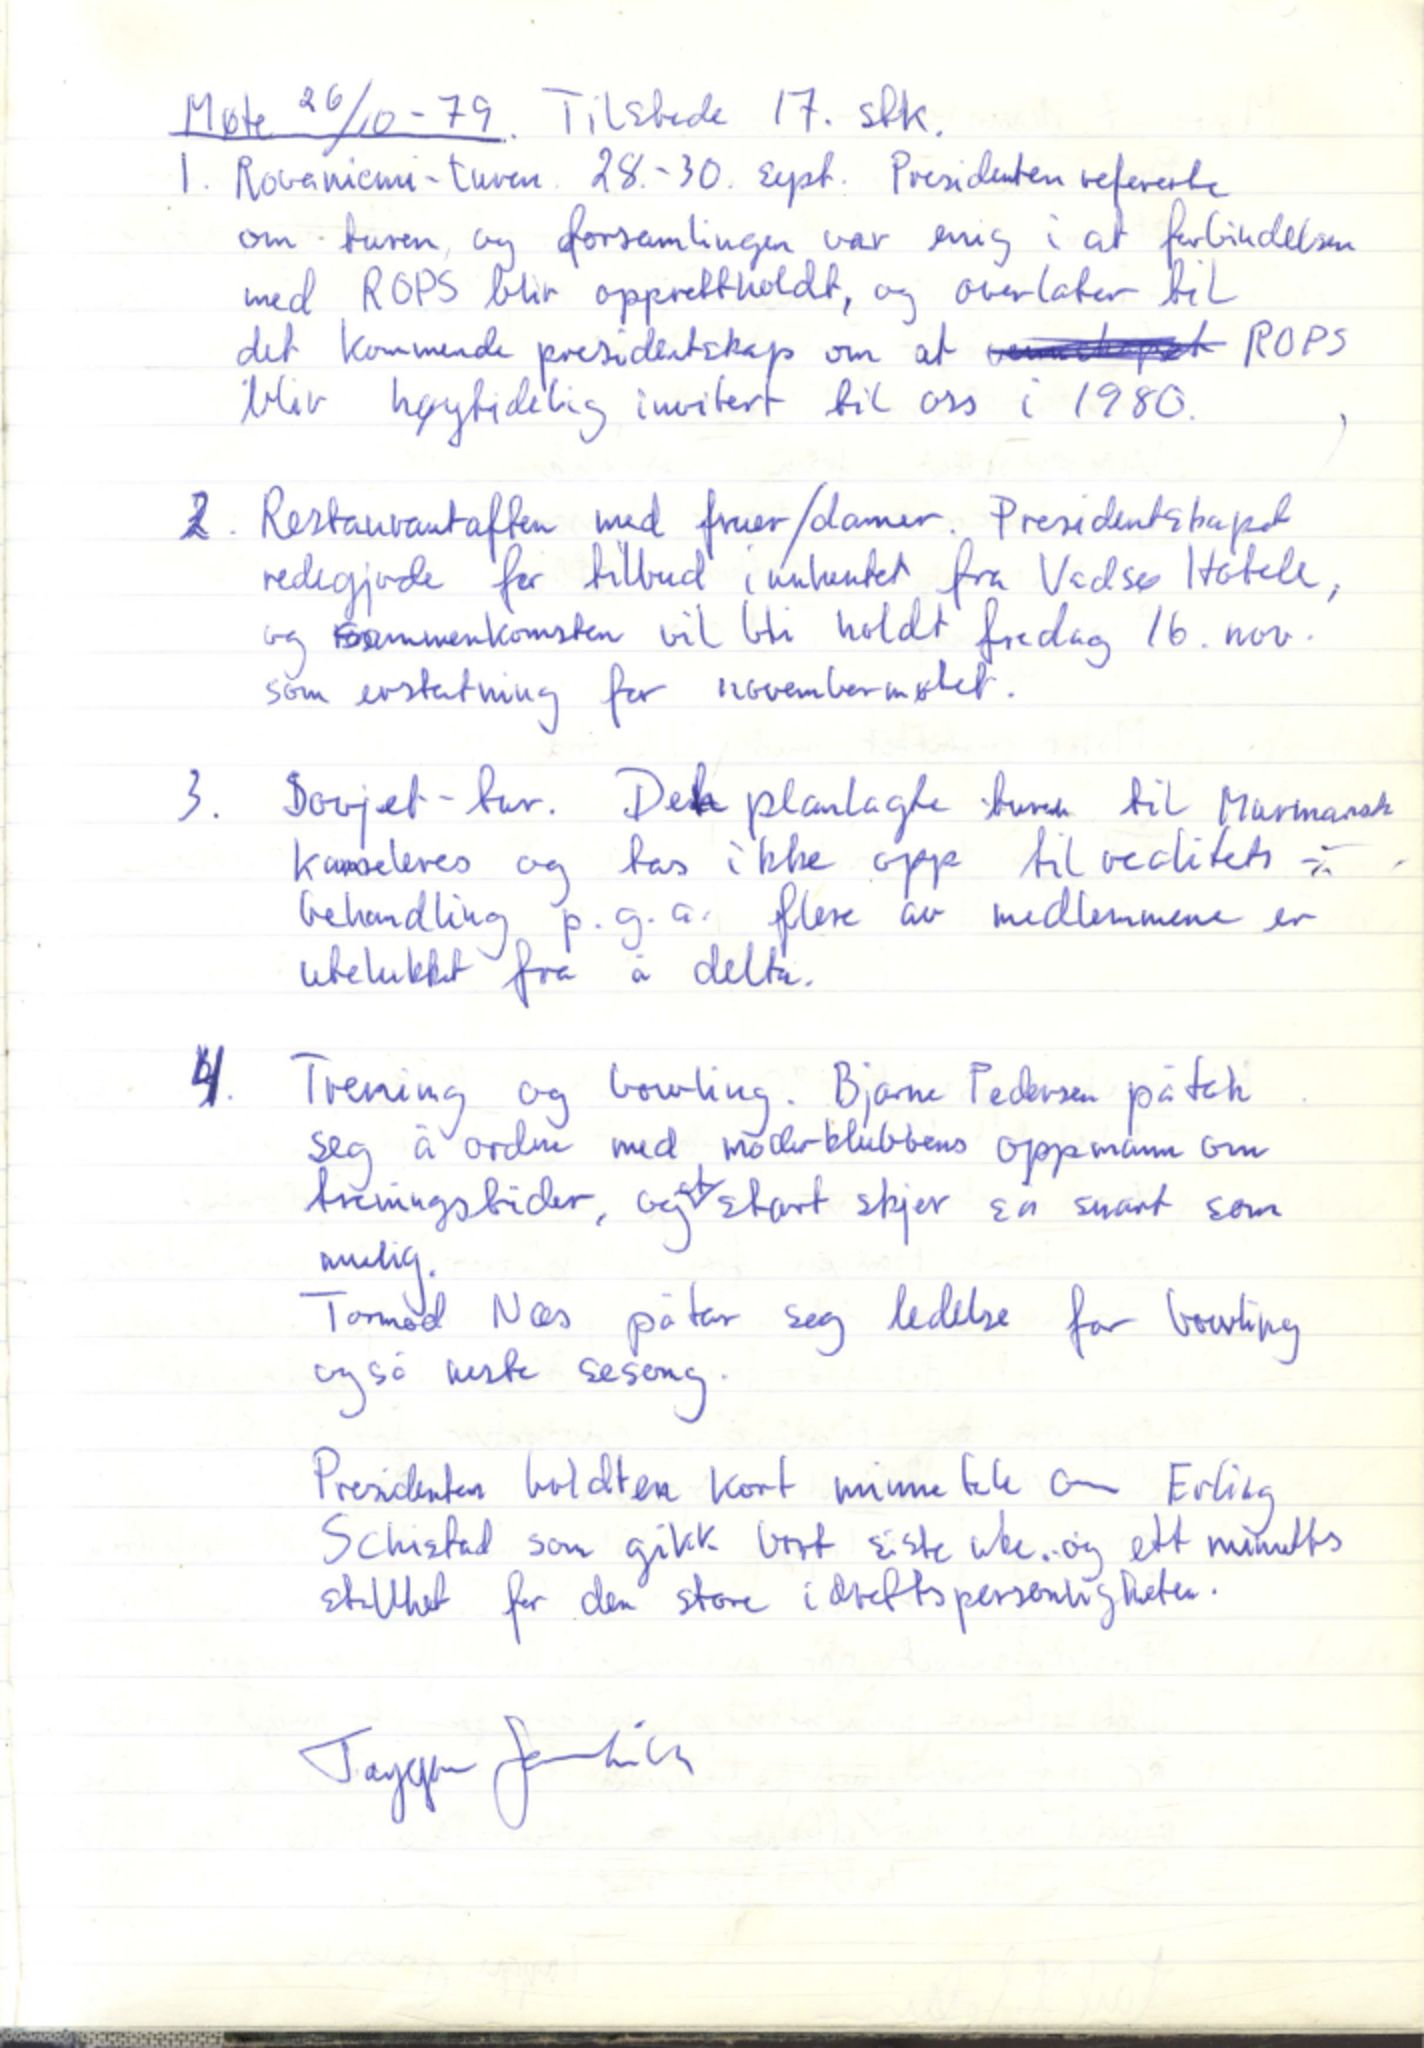 Møte 26/10-79. Tilstede 17. stk.
1. Rovaniemi-turen 28.-30. sept. Presidenten refererte
om turen, og forsamlingen var enig i at forbindelsen
med ROPS blir opprettholdt, og overlater til
det kommende presidentskap om at ROPS
blir høytidelig invitert til oss i 1980.
2. Restaurantaften med fruer/damer. Presidentskapet
redegjorde for tilbud innhentet fra Vadsø Hotell,
og sammenkomsten vil bli holdt fredag 16. nov.
som erstatning for novembermøtet.
3. Sovjet-tur. Den planlagte turen til Murmansk
kanseleres og tas ikke opp til realitets-
behandling p.g.a. flere av medlemmene er
utelukket fra å delta.
4. Trening og bowling. Bjarne Pedersen påtok
seg å ordne med moderklubbens oppmann om
treningstider, og at start skjer så snart som
mulig.
Tormod Næs påtar seg ledelse for bowling
også neste sesong.
Presidenten holdt en kort minnetale om Erling
Schistad som gikk bort siste uke. og ett minutts
stillhet for den store idrettspersonligheten.